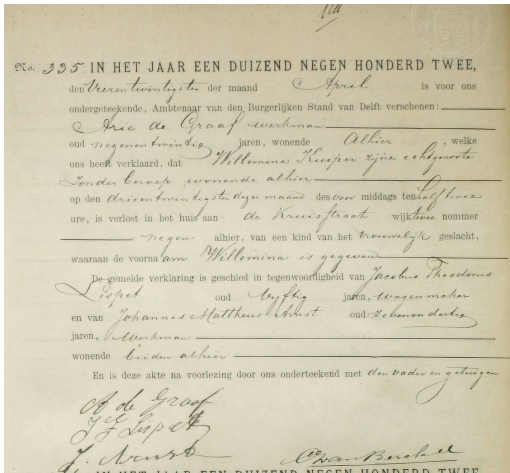 No. 335 IN HET JAAR EEN DUIZEND NEGEN HONDERD TWEE,
den Vierentwintigsten der maand April is voor ons
ondergeteekende, Ambtenaar van den Burgerlijken Stand van Delft verschenen:
Arie de Graaf werkman
oud negenentwintig jaren, wonende Alhier, welke
ons heeft verklaard, dat Willemina Kuiper zijne echtgenoote
zonder beroep, wonende alhier
op den drieentwintigsten dezer maand des voor middags ten half twee
ure, is verlost in het huis aan de Kruisstraat wijk twee nommer
negen alhier, van een kind van het vrouwelijk geslacht,
waaraan de voornaam Willemina is gegeven
De gemelde verklaring is geschied in tegenwoordigheid van Jacobus Theodorus
Lispet oud vijftig jaren, wagenmaker
en van Johannes Mattheus Arnst oud zevenendertig
jaren, werkman
wonende beiden alhier
En is deze akte na voorlezing door ons onderteekend met den vader en getuigen
A de Graaf
J T Lispet
J. Arnst van Berckel
IN HET JAAR EEN DUIZEND NEGEN HONDERD TWEE